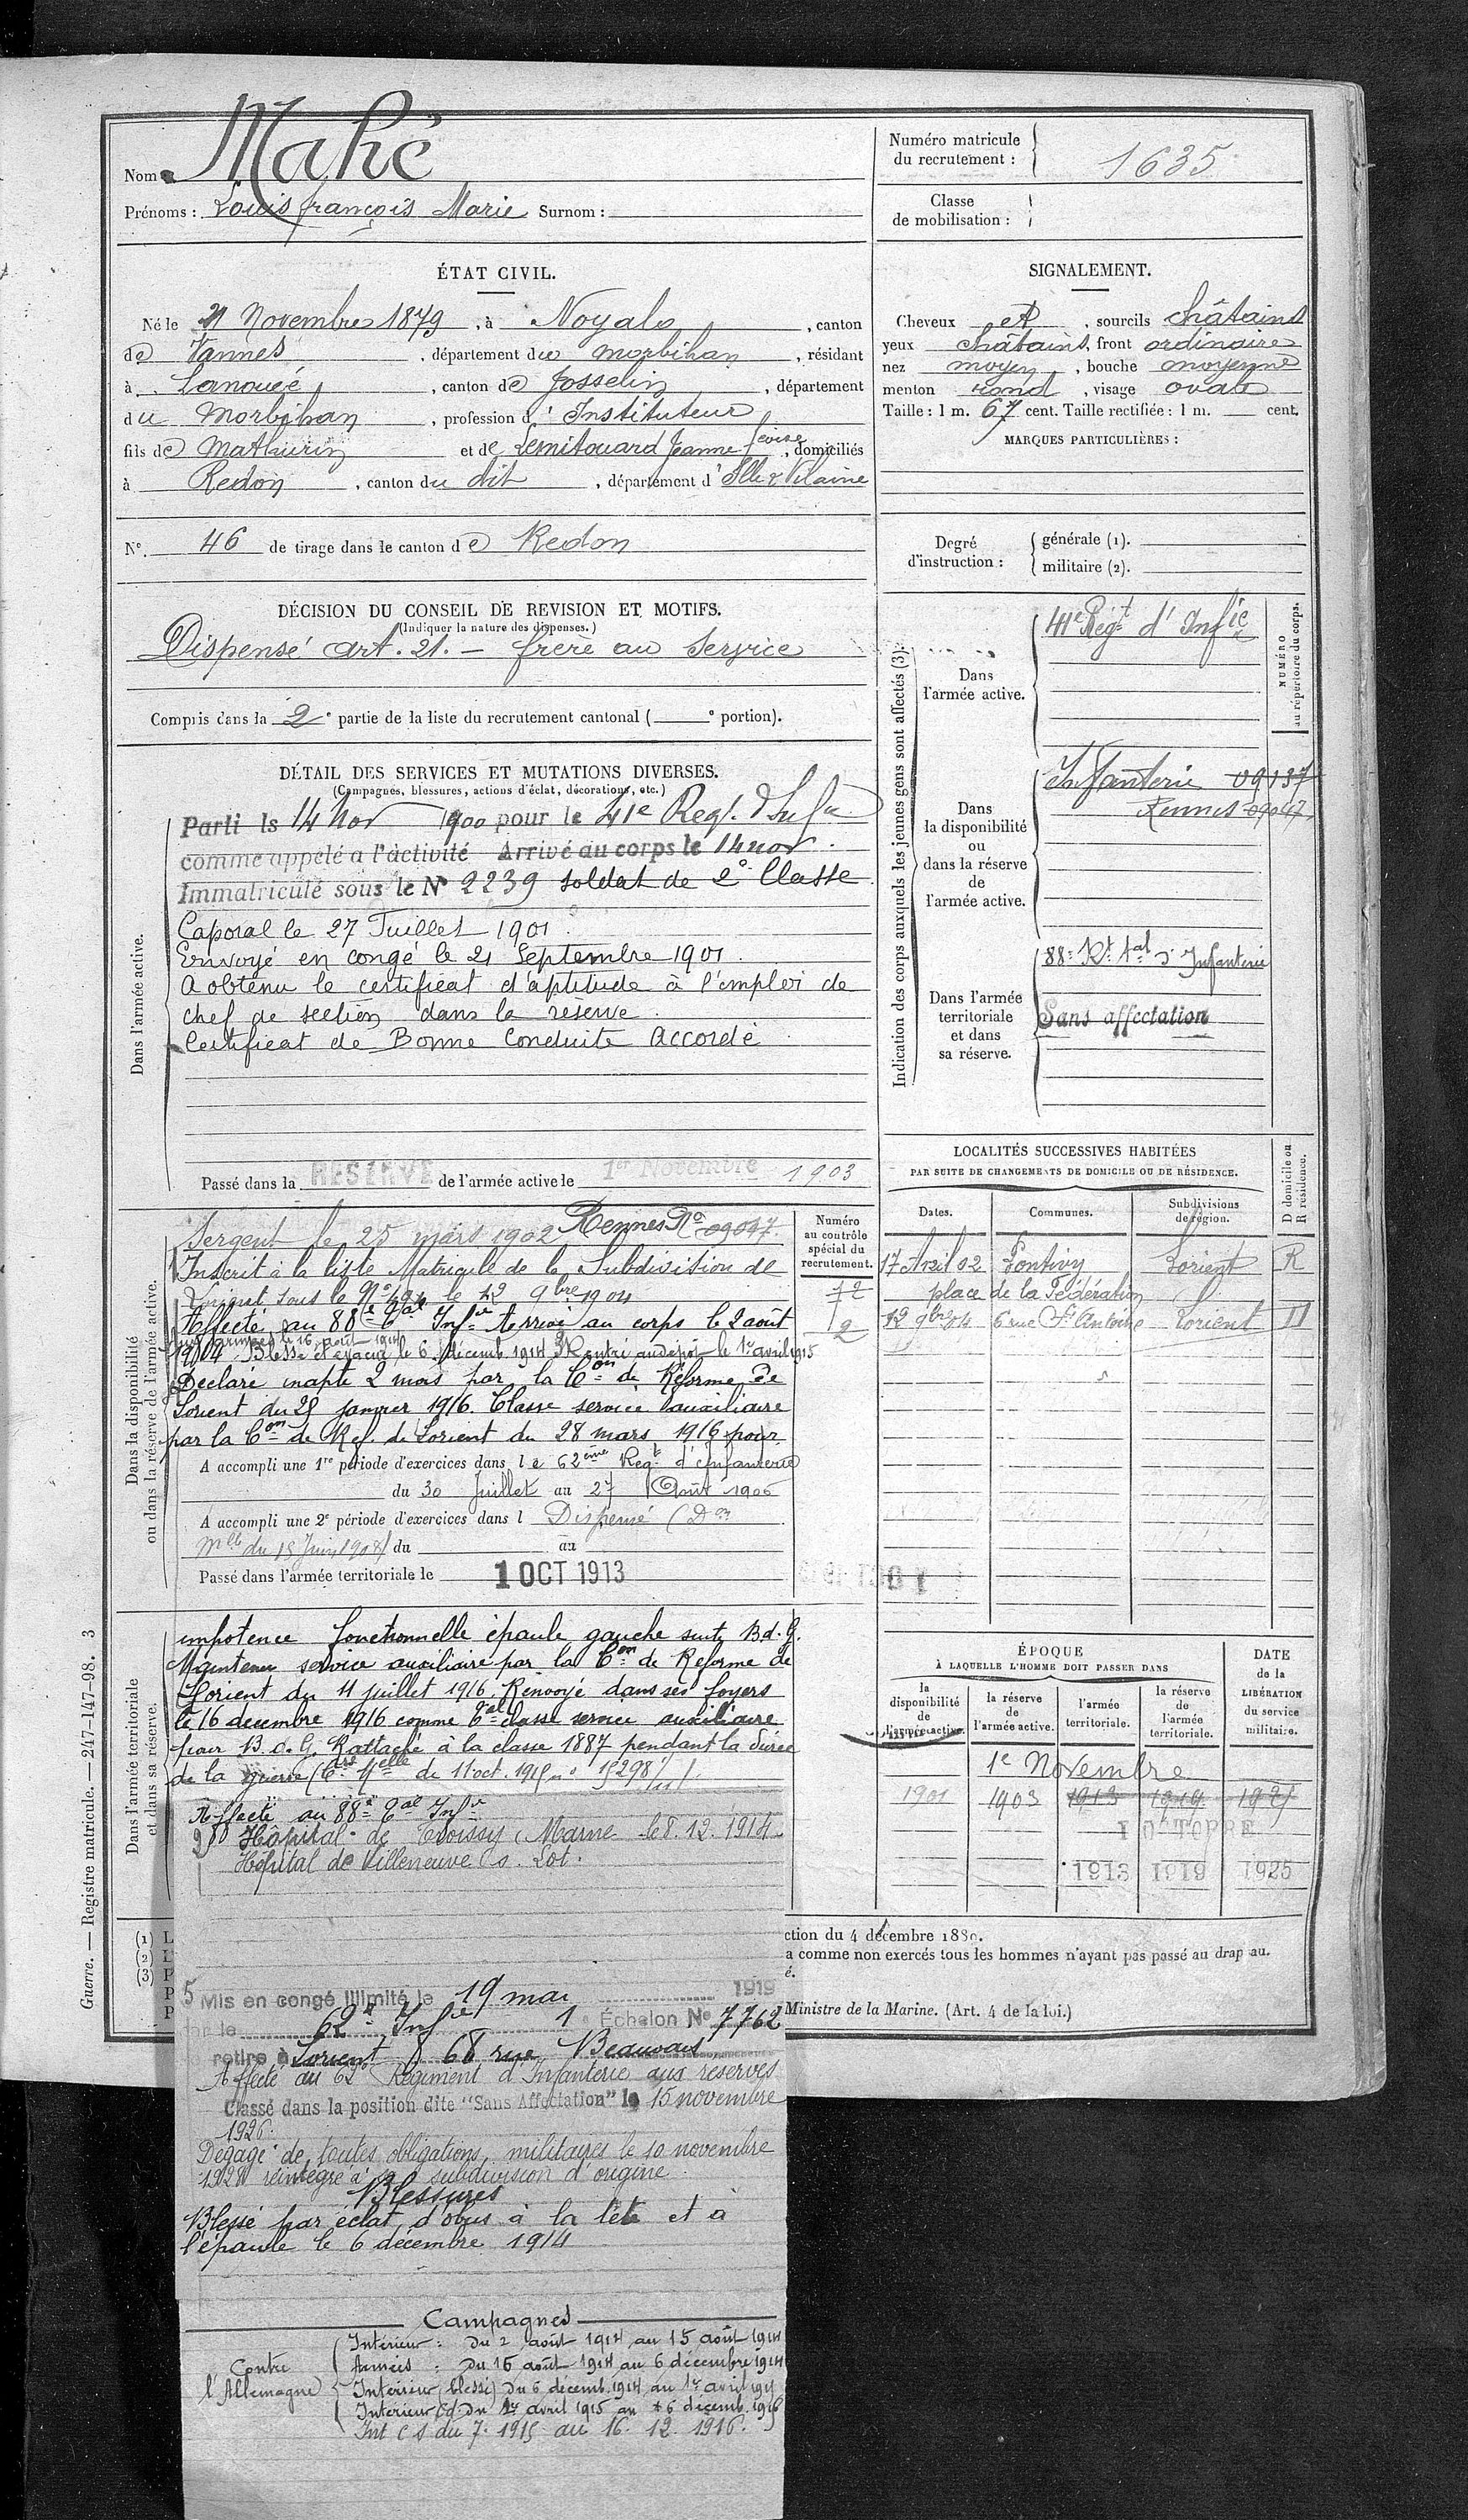 Nom Mahé
Prénoms : Louis françois Marie Surnom :
Numéro matricule
du recrutement :
1635
Classe
de mobilisation :
ÉTAT CIVIL.
Né le 21 Novembre 1879, à Noyalo, canton
de Vannes, département du Morbihan, résidant
à Lanouée, canton de Josselin, département
du Morbihan, profession d'Instituteur
fils de Mathurin et de Lemitouard Jeanne Louise, domiciliés
à Redon, canton du dit, département d'Ille & Vilaine
N°. 46 de tirage dans le canton de Redon
SIGNALEMENT.
Cheveux et, sourcils châtains
yeux châtains, front ordinaire
nez moyen, bouche moyenne
menton rond, visage ovale
Taille : 1 m. 67 cent. Taille rectifiée : 1 m. cent.
MARQUES PARTICULIÈRES :
Degré
d'instruction :
générale (1).
militaire (2).
DÉCISION DU CONSEIL DE REVISION ET MOTIFS.
(Indiquer la nature des dispenses.)
Dispensé art. 21. - frère au Service
Compris dans la 2e partie de la liste du recrutement cantonal ( e portion).
DÉTAIL DES SERVICES ET MUTATIONS DIVERSES.
(Campagnes, blessures, actions d'éclat, décorations, etc.)
Dans l'armée active.
Parti le 14 Nov 1900 pour le 41e Regt. d'Infie
comme appelé a l'activité Arrivé au corps le 14 nov.
Immatriculé sous le N° 2239 soldat de 2e Classe
Caporal le 27 Juillet 1901.
Envoyé en congé le 21 Septembre 1901.
A obtenu le certificat d'aptitude à l'emploi de
chef de section dans la réserve.
Certificat de Bonne Conduite Accordé
Passé dans la RÉSERVE de l'armée active le 1er Novembre 1903
Indication des corps auxquels les jeunes gens sont affectés (3).
Dans
l'armée active.
41e Regt d'Infie
NUMÉRO
au répertoire du corps.
Dans
la disponibilité
ou
dans la réserve
de
l'armée active.
Infanterie 09137
Rennes 09047
Dans l'armée
territoriale
et dans
sa réserve.
88e Rt tal d'Infanterie
Sans affectation
LOCALITÉS SUCCESSIVES HABITÉES
PAR SUITE DE CHANGEMENTS DE DOMICILE OU DE RÉSIDENCE.
D domicile ou
R résidence.
Dates.
Communes.
Subdivisions
de région.
17 Avril 02 Pontivy Lorient R
place de la Fédération
12 9bre 04 6 rue St Antoine Lorient D
Dans la disponibilité
ou dans la réserve de l'armée active.
Numéro
au contrôle
spécial du
recrutement.
Sergent le 25 mars 1902 Rennes No 09047.
Inscrit à la liste Matricule de la Subdivision de
Lorient sous le No le 12 9bre 1904
Affecté au 88e tal Infie Arrivé au corps le 2 août
aux armées le 16 août 1914
Blessé et évacué le 6 décemb. 1914 Rentré au dépôt le 1er avril 1915
Déclaré inapte 2 mois par la Con de Réforme de
Lorient du janvier 1916. Classé service auxiliaire
par la Con de Ref. de Lorient du 28 mars 1916 pour
A accompli une 1re période d'exercices dans le 62ème Regt d'Infanterie
du 30 Juillet au 27 Août 1906
A accompli une 2e période d'exercices dans l Dispensé (Don
Mlle du 15 Juin 1908) du au
Passé dans l'armée territoriale le 1 OCT 1913
Dans l'armée territoriale
et dans sa réserve.
impotence fonctionnelle épaule gauche suite B.d.G.
Maintenu service auxiliaire par la Con de Réforme de
Lorient du 11 juillet 1916. Renvoyé dans ses foyers
le 16 décembre 1916 comme classe service auxiliaire
pour B.d.G. Rattaché à la classe 1887 pendant la durée
de la guerre (Cire Melle du 11 oct. 1915 no 15298 1/11).
Affecté au 88e tal Infie
Hôpital de Troissy Marne le 8.12.1914
Hôpital de Villeneuve s. Lot.
ÉPOQUE
À LAQUELLE L'HOMME DOIT PASSER DANS
DATE
de la
LIBÉRATION
du service
militaire.
la
disponibilité
de
l'armée active.
la réserve
de
l'armée active.
l'armée
territoriale.
la réserve
de
l'armée
territoriale.
1e Novembre
1901 1903 1913 1919
1 OCTOBRE
1913 1919 1925
ction du 4 décembre 1889.
a comme non exercés tous les hommes n'ayant pas passé au drapeau.
é.
Ministre de la Marine. (Art. 4 de la loi.)
Guerre. — Registre matricule. — 247-147-98. 3
Mis en congé illimité le 19 mai 1919
par le 62e Infie 1e Échelon No 7762
se retire à Lorient 68 rue Beauvais
Affecté au 62e Régiment d'Infanterie aux réserves
Classé dans la position dite "Sans Affectation" le 15 novembre
1926.
Dégagé de toutes obligations militaires le 10 novembre
1928 réintégré à sa subdivision d'origine.
Blessures
Blessé par éclat d'obus à la tête et à
l'épaule le 6 décembre 1914
Campagnes
Contre
l'Allemagne
Intérieur : du 2 août 1914 au 15 août 1914
Armées : du 16 août 1914 au 6 décembre 1914
Intérieur (blessé) du 6 décemb. 1914 au 1er avril 1915
Intérieur Cd. du 1er avril 1915 au 16 décemb. 1916
Int C S du 7. 1915 au 16. 12. 1916.